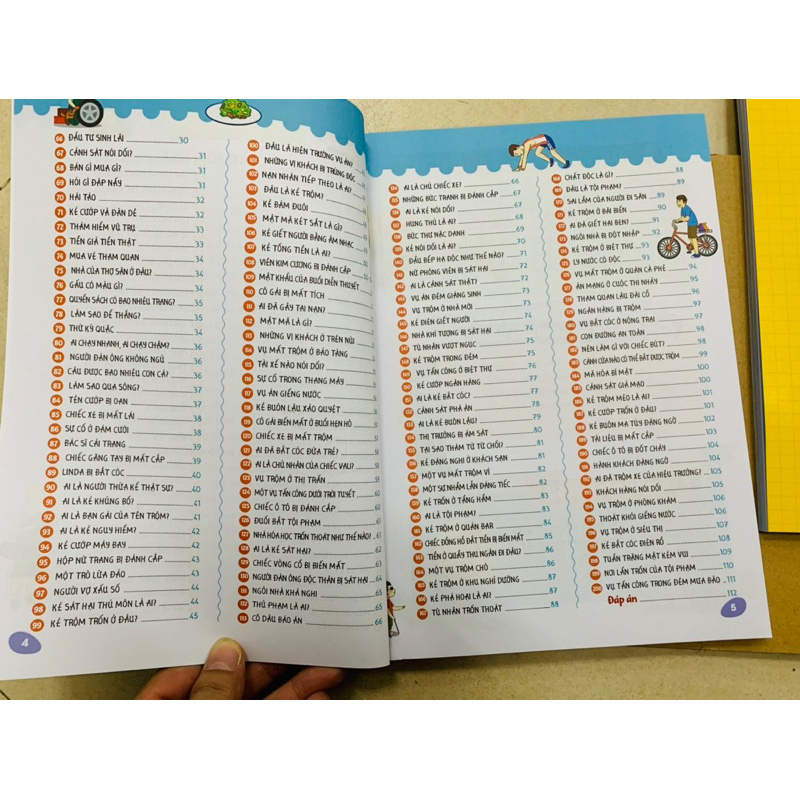 66 ĐẦU TƯ SINH LÃI 30
67 CẢNH SÁT NÓI DỐI? 31
68 BẠN GÌ MUA GÌ? 31
69 HỎI GÌ ĐÁP NẤY 31
70 HÁI TÁO 32
71 KẺ CƯỚP VÀ ĐÀN DÊ 32
72 THÁM HIỂM VŨ TRỤ 33
73 TIỀN GIẢ TIỀN THẬT 33
74 MUA VÉ THAM QUAN 34
75 NHÀ CỦA THỢ SĂN Ở ĐÂU? 34
76 GẤU CÓ MÀU GÌ? 34
77 QUYỂN SÁCH CÓ BAO NHIÊU TRANG? 35
78 LÀM SAO ĐỂ THẮNG? 35
79 THỨ KỲ QUẶC 36
80 AI CHẠY NHANH, AI CHẠY CHẬM? 36
81 NGƯỜI ĐÀN ÔNG KHÔNG NGỦ 36
82 CÂU ĐƯỢC BAO NHIÊU CON CÁ? 37
83 LÀM SAO QUA SÔNG? 37
84 TÊN CƯỚP BỊ OAN 37
85 CHIẾC XE BỊ MẤT LÁI 38
86 SỰ CỐ Ở ĐÁM CƯỚI 38
87 BÁC SĨ CẢI TRANG 39
88 CHIẾC GĂNG TAY BỊ MẤT CẮP 39
89 LINDA BỊ BẮT CÓC 40
90 AI LÀ NGƯỜI THỪA KẾ THẬT SỰ? 40
91 AI LÀ KẺ KHỦNG BỐ? 41
92 AI LÀ BẠN GÁI CỦA TÊN TRỘM? 41
93 AI LÀ KẺ NGUY HIỂM? 42
94 KẺ CƯỚP MÁY BAY 42
95 HỘP NỮ TRANG BỊ ĐÁNH CẮP 43
96 MỘT TRÒ LỪA ĐẢO 43
97 NGƯỜI VỢ XẤU SỐ 44
98 KẺ SÁT HẠI THỦ MÔN LÀ AI? 44
99 KẺ TRỘM TRỐN Ở ĐÂU? 45
4
100 ĐÂU LÀ HIỆN TRƯỜNG VỤ ÁN?
101 NHỮNG VỊ KHÁCH BỊ TRÚNG ĐỘC
102 NẠN NHÂN TIẾP THEO LÀ AI?
103 ĐÂU LÀ KẺ TRỘM?
104 KẺ BÁM ĐUÔI
105 MẬT MÃ KÉT SẮT LÀ GÌ?
106 KẺ GIẾT NGƯỜI BẰNG ÂM NHẠC
107 KẺ TỐNG TIỀN LÀ AI?
108 VIÊN KIM CƯƠNG BỊ ĐÁNH CẮP
109 MẬT KHẨU CỦA BUỔI DIỄN THUYẾT
110 CÔ GÁI BỊ MẤT TÍCH
111 AI ĐÃ GÂY TAI NẠN?
112 MẬT MÃ LÀ GÌ?
113 NHỮNG VỊ KHÁCH Ở TRÊN NÚI
114 VỤ MẤT TRỘM Ở BẢO TÀNG
115 TÀI XẾ NÀO NÓI DỐI?
116 SỰ CỐ TRONG THANG MÁY
117 VỤ ÁN GIẾNG NƯỚC
118 KẺ BUÔN LẬU XẢO QUYỆT
119 CÔ GÁI BIẾN MẤT Ở BUỔI HẸN HÒ
120 CHIẾC XE BỊ MẤT TRỘM
121 AI ĐÃ BẮT CÓC ĐỨA TRẺ?
122 AI LÀ CHỦ NHÂN CỦA CHIẾC VALI?
123 VỤ TRỘM Ở THỊ TRẤN
124 MỘT VỤ TẤN CÔNG DƯỚI TRỜI TUYẾT
125 CHIẾC Ô TÔ BỊ ĐÁNH CẮP
126 ĐUỔI BẮT TỘI PHẠM
127 NHÀ HÓA HỌC TRỐN THOÁT NHƯ THẾ NÀO?
128 AI LÀ KẺ SÁT HẠI? 62
129 CHIẾC VÒNG CỔ BỊ BIẾN MẤT
130 NGƯỜI ĐÀN ÔNG ĐỘC THÂN BỊ SÁT HẠI
131 NGÔI NHÀ KHẢ NGHI 65
132 THỦ PHẠM LÀ AI? 65
133 CÓ DẤU BÁO ÁN 66
134 AI LÀ CHỦ CHIẾC XE? 66
135 NHỮNG BỨC TRANH BỊ ĐÁNH CẮP 67
136 AI LÀ KẺ NÓI DỐI? 67
137 HUNG THỦ LÀ AI? 68
138 BỨC THƯ NẶC DANH 69
139 KẺ NÓI DỐI LÀ AI? 69
140 ĐẦU BẾP HẠ ĐỘC NHƯ THẾ NÀO? 70
141 NỮ PHÓNG VIÊN BỊ SÁT HẠI 71
142 AI LÀ CẢNH SÁT THẬT? 72
143 VỤ ÁN ĐÊM GIÁNG SINH 73
144 VỤ TRỘM Ở NHÀ MỚI 73
145 KẺ ĐIÊN GIẾT NGƯỜI 74
146 NHÀ KHÍ TƯỢNG BỊ SÁT HẠI 74
147 TÙ NHÂN VƯỢT NGỤC 75
148 KẺ TRỘM TRONG ĐÊM 75
149 VỤ TẤN CÔNG Ở BIỆT THỰ 76
150 KẺ CƯỚP NGÂN HÀNG 77
151 AI LÀ KẺ BẮT CÓC? 77
152 CẢNH SÁT PHÁ ÁN 78
153 AI LÀ KẺ BUÔN LẬU? 79
154 THỊ TRƯỞNG BỊ ÁM SÁT 80
155 TẠI SAO THÁM TỬ TỪ CHỐI? 81
156 KẺ ĐÁNG NGHI Ở KHÁCH SẠN 81
157 MỘT VỤ MẤT TRỘM VÍ 82
158 MỘT SỰ NHẦM LẪN ĐÁNG TIẾC 82
159 KẺ TRỐN Ở TẦNG HẦM 83
160 AI LÀ TỘI PHẠM? 83
161 KẺ TRỘM Ở QUÁN BAR 84
162 CHIẾC ĐỒNG HỒ ĐẮT TIỀN BỊ BIẾN MẤT 85
163 TIỀN Ở QUẦY THU NGÂN ĐI ĐÂU? 86
164 MỘT VỤ TRỘM CHÓ 86
165 KẺ TRỘM Ở KHU NGHỈ DƯỠNG 87
166 KẺ PHÁ HOẠI LÀ AI? 87
167 TÙ NHÂN TRỐN THOÁT 88
168 CHẤT ĐỘC LÀ GÌ? 88
169 ĐÂU LÀ TỘI PHẠM? 89
170 SAI LẦM CỦA NGƯỜI ĐI SĂN 89
171 KẺ TRỘM Ở BÃI BIỂN 90
172 AI ĐÃ GIẾT HẠI BEN? 91
173 NGÔI NHÀ BỊ ĐỘT NHẬP 92
174 KẺ TRỘM Ở BIỆT THỰ 93
175 LY NƯỚC CÓ ĐỘC 93
176 VỤ MẤT TRỘM Ở QUÁN CÀ PHÊ 94
177 ÁN MẠNG Ở CUỘC THI NHẢY 95
178 THAM QUAN LÂU ĐÀI CỔ 96
179 NGÂN HÀNG BỊ TRỘM 97
180 VỤ BẮT CÓC Ở NÔNG TRẠI 97
181 CON ĐƯỜNG AN TOÀN 98
182 NÊN LÀM GÌ VỚI CHIẾC BÚT? 98
183 CÁNH CỬA NÀO CÓ THỂ BẮT ĐƯỢC TRỘM 99
184 MÃ HÓA BÍ MẬT 100
185 CẢNH SÁT GIẢ MẠO 100
186 KẺ TRỘM MÈO LÀ AI? 101
187 KẺ CƯỚP TRỐN Ở ĐÂU? 101
188 KẺ BUÔN MA TÚY ĐÁNG NGỜ 102
189 TÀI LIỆU BỊ MẤT CẮP 103
190 CHIẾC Ô TÔ BỊ ĐỐT CHÁY 104
191 HÀNH KHÁCH ĐÁNG NGỜ 104
192 AI ĐÃ TRỘM XE CỦA HIỆU TRƯỞNG? 105
193 KHÁCH HÀNG NÓI DỐI 105
194 VỤ TRỘM Ở PHÒNG KHÁM 106
195 THOÁT KHỎI GIẾNG NƯỚC 106
196 VỤ TRỘM Ở SIÊU THỊ 107
197 KẺ BẮT CÓC ĐIÊN RỒ 108
198 TUẦN TRĂNG MẬT KÉM VUI 109
199 NƠI LẨN TRỐN CỦA TỘI PHẠM 110
200 VỤ TẤN CÔNG TRONG ĐÊM MƯA BÃO 111
Đáp án 112
5